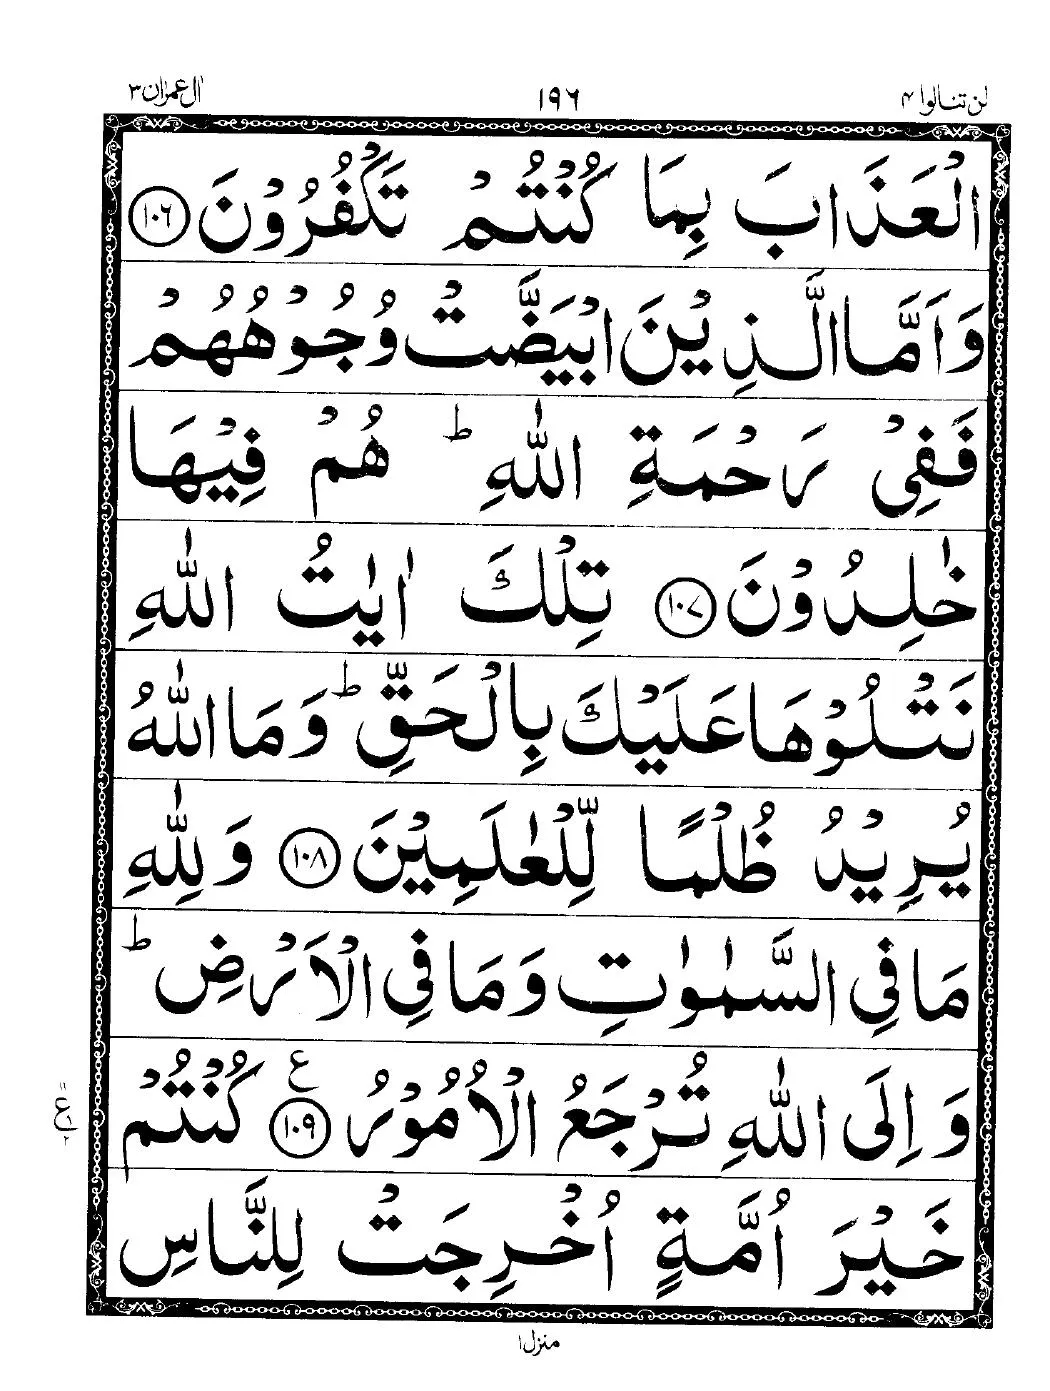 لن تنالوا ۴ ۱۹۶ اٰل عمرٰن ۳
الْعَذَابَ بِمَا كُنْتُمْ تَكْفُرُوْنَ ۝۱۰۶
وَاَمَّا الَّذِيْنَ ابْيَضَّتْ وُجُوْهُهُمْ
فَفِيْ رَحْمَةِ اللّٰهِ ؕ هُمْ فِيْهَا
خٰلِدُوْنَ ۝۱۰۷ تِلْكَ اٰيٰتُ اللّٰهِ
نَتْلُوْهَا عَلَيْكَ بِالْحَقِّ ؕ وَمَا اللّٰهُ
يُرِيْدُ ظُلْمًا لِّلْعٰلَمِيْنَ ۝۱۰۸ وَلِلّٰهِ
مَا فِي السَّمٰوٰتِ وَمَا فِي الْاَرْضِ ؕ
وَاِلَى اللّٰهِ تُرْجَعُ الْاُمُوْرُ ۝۱۰۹ ع كُنْتُمْ
۱۱ ع ۲
خَيْرَ اُمَّةٍ اُخْرِجَتْ لِلنَّاسِ
منزل ۱